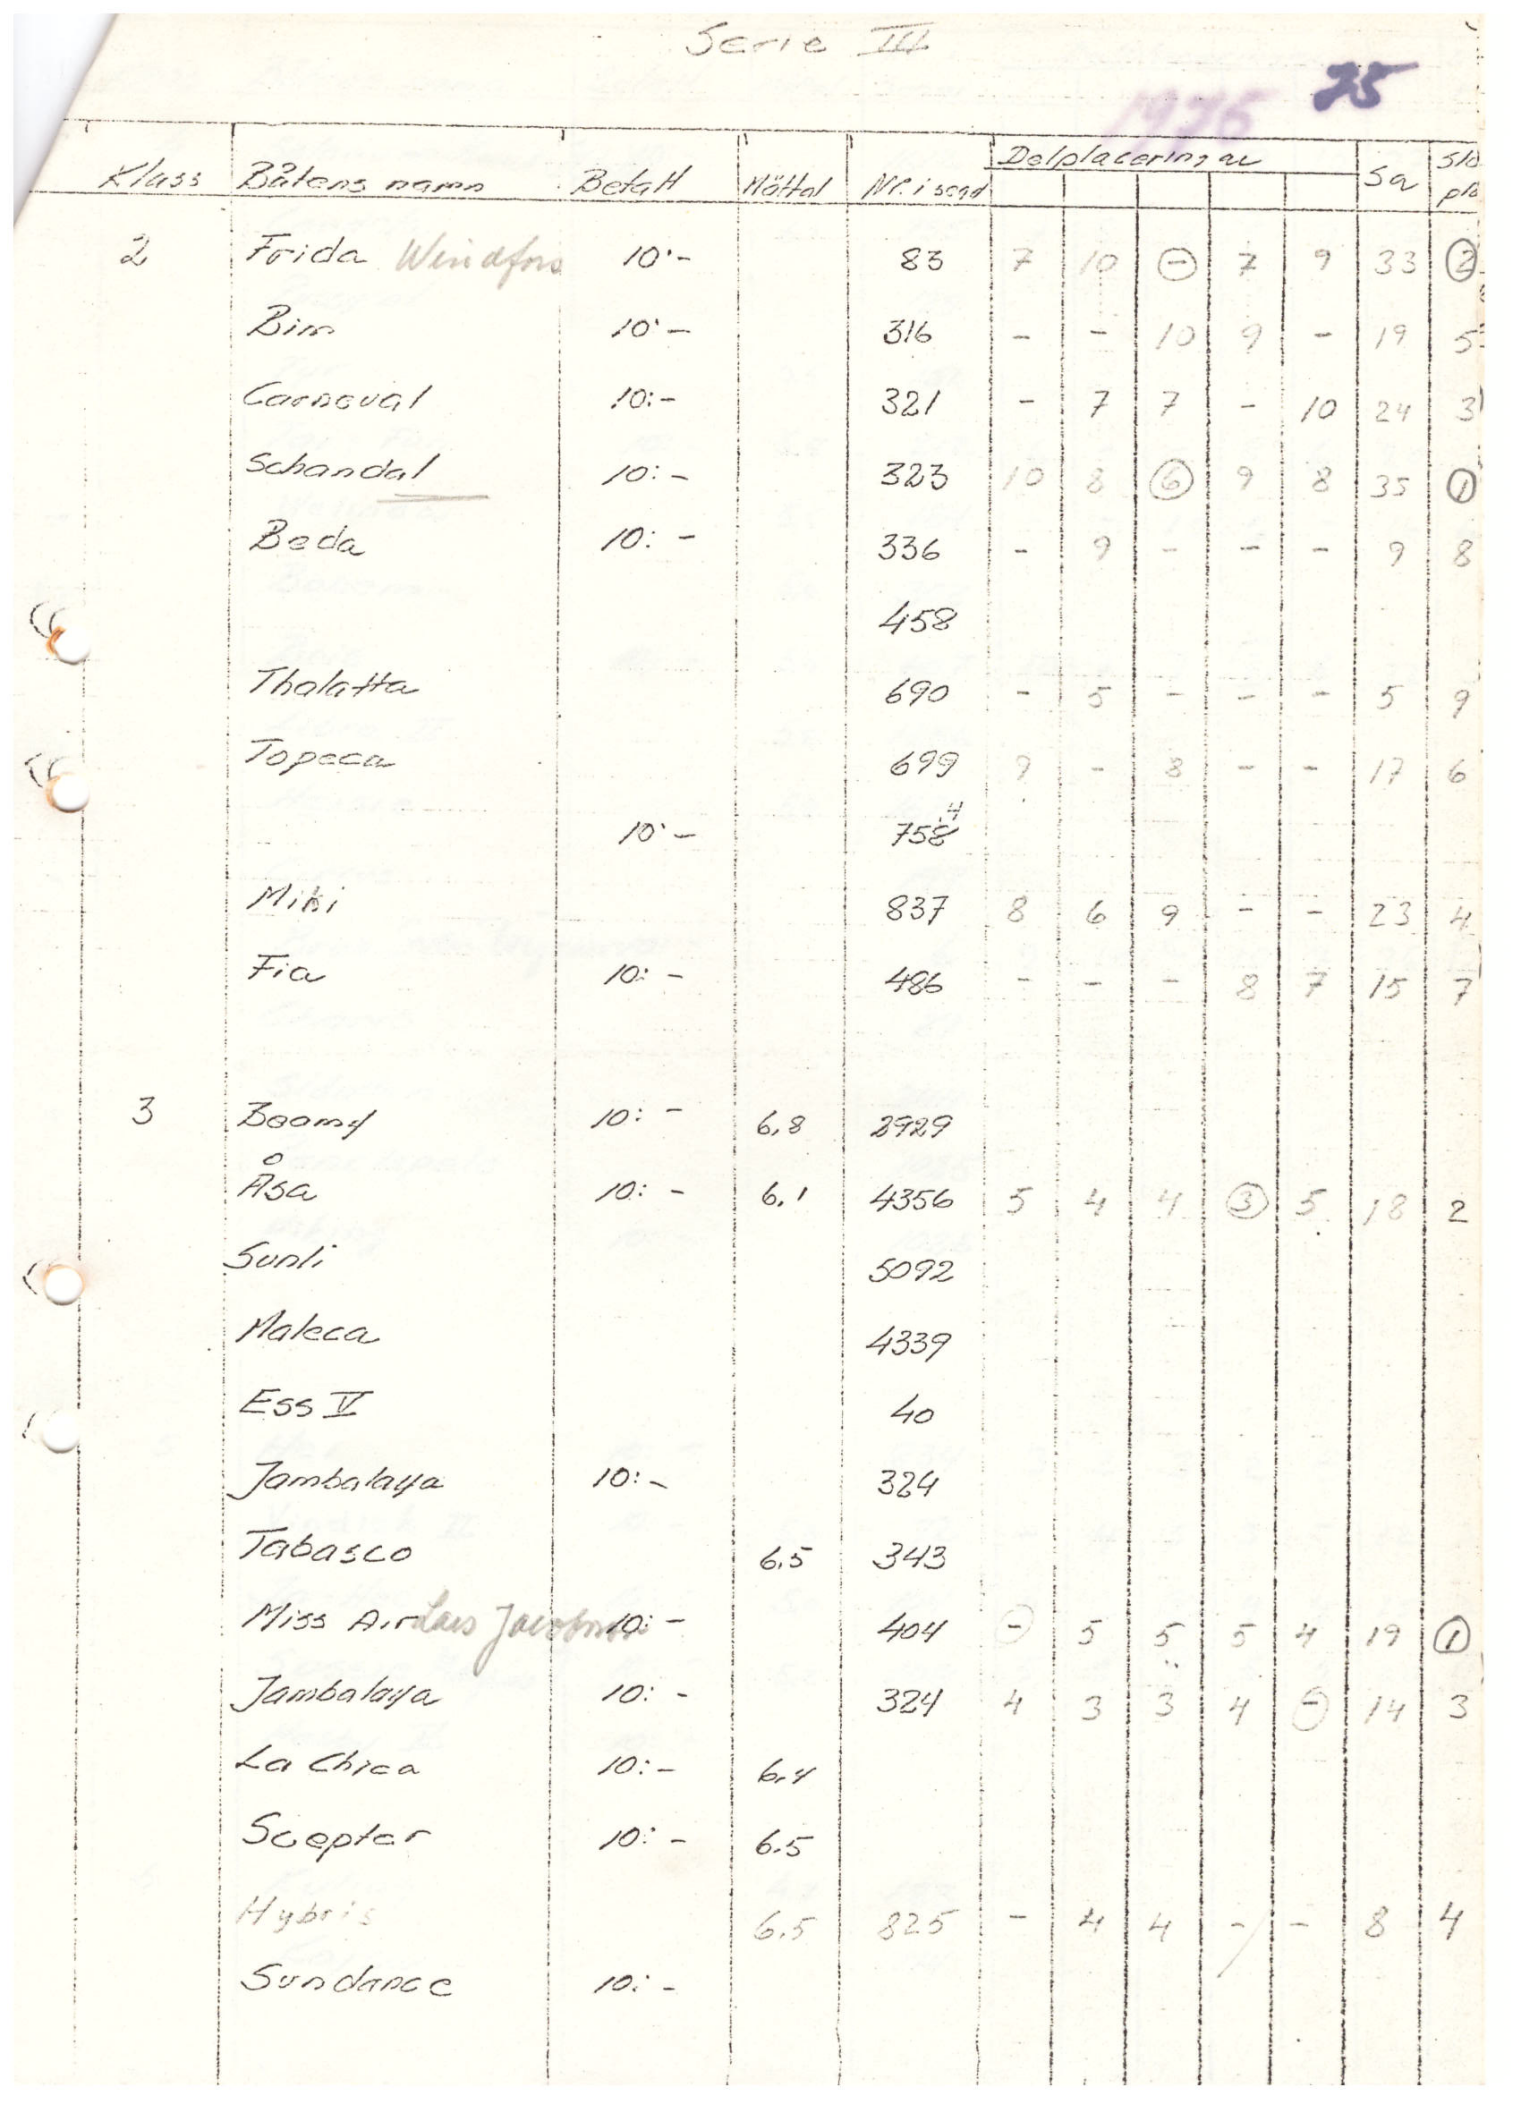 Serie III
1976 75
Klass Båtens namn Betalt Mättal Nr. i segel Delplaceringar Sa
2 Frida Windfors 10:- 83 7 10 - 7 9 33 2
Bim 10:- 316 - - 10 9 - 19 5
Carneval 10:- 321 - 7 7 - 10 24 3
Schandal 10:- 323 10 8 6 9 8 35 1
Beda 10:- 336 - 9 - - - 9 8
458
Thalatta 690 - 5 - - - 5 9
Topeca 699 9 - 8 - - 17 6
10:- 758 4
Miki 837 8 6 9 - - 23 4
Fia 10:- 486 - - - 8 7 15 7
3 Boomy 10:- 6,8 2929
Åsa 10:- 6,1 4356 5 4 4 3 5 18 2
Sunli 5092
Maleca 4339
Ess V 40
Jambalaya 10:- 324
Tabasco 6.5 343
Miss Air Lars Jacobsson 10:- 404 - 5 5 5 4 19 1
Jambalaya 10:- 324 4 3 3 4 - 14 3
La Chica 10:- 6.4
Scepter 10:- 6.5
Hybris 6.5 825 - 4 4 - - 8 4
Sundance 10:-